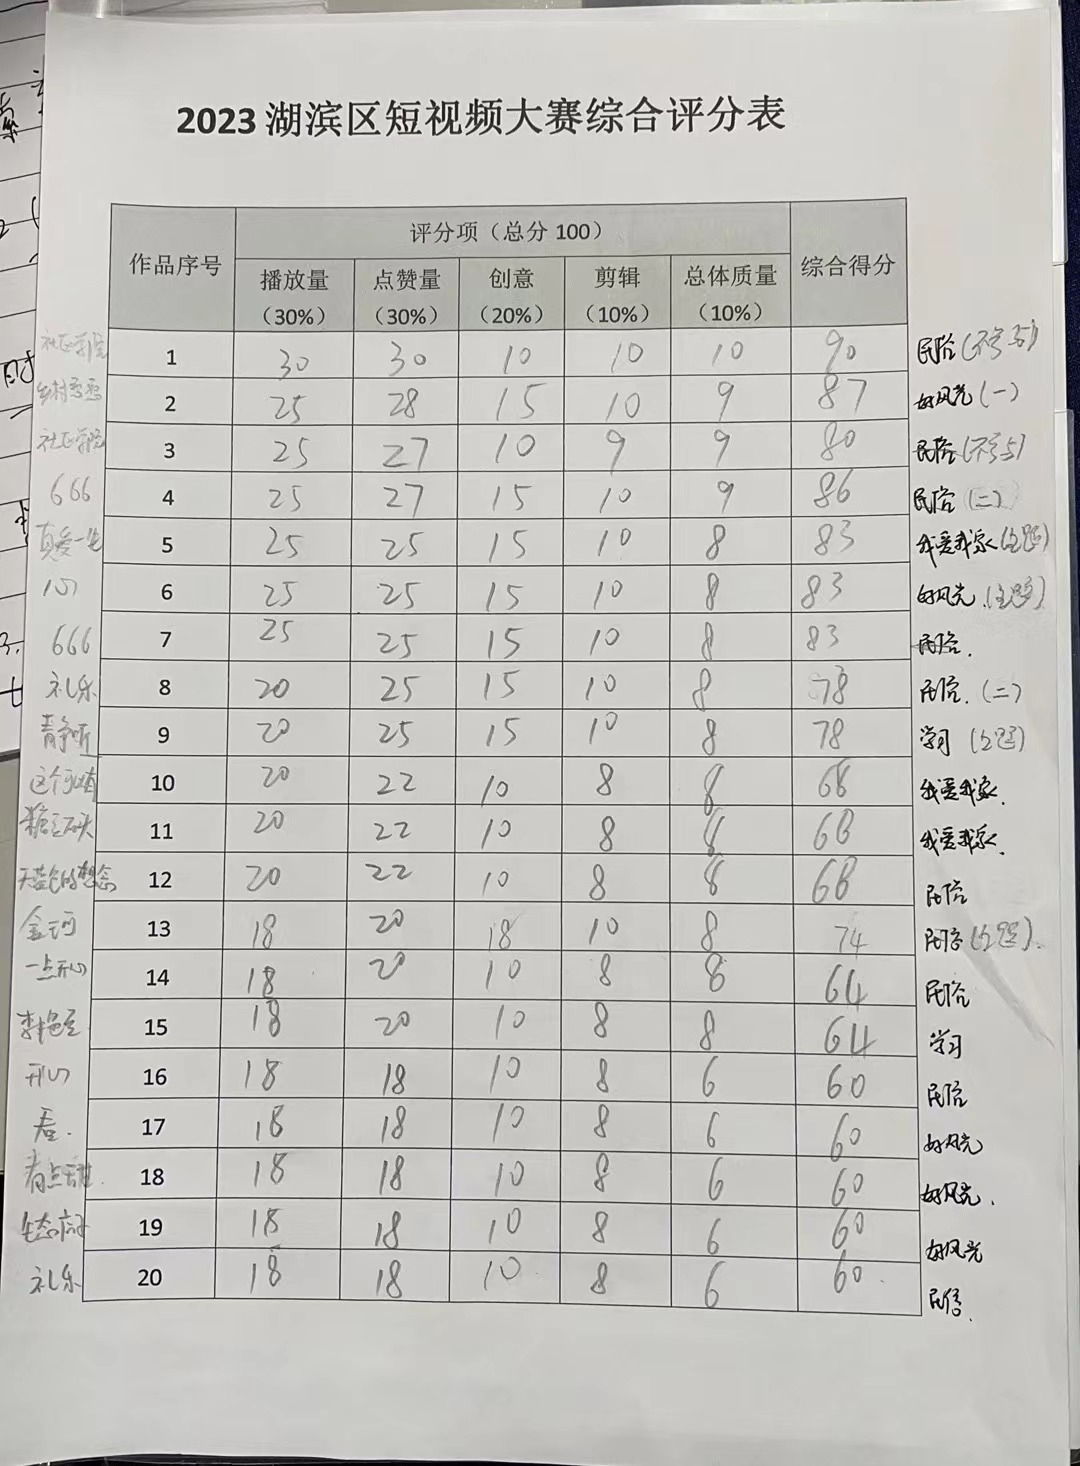 2023 湖滨区短视频大赛综合评分表
作品序号 评分项（总分 100） 综合得分
播放量（30%） 点赞量（30%） 创意（20%） 剪辑（10%） 总体质量（10%）
1 30 30 10 10 10 90 民俗
乡村 2 25 28 15 10 9 87 好风光（一）
3 25 27 10 9 9 80 民俗
666 4 25 27 15 10 9 86 民俗（二）
真爱一生 5 25 25 15 10 8 83 我爱我家（主题）
6 25 25 15 10 8 83 好风光（主题）
666 7 25 25 15 10 8 83 民俗.
礼乐 8 20 25 15 10 8 78 民俗.（二）
静听 9 20 25 15 10 8 78 学习（主题）
这个 10 20 22 10 8 8 68 我爱我家.
11 20 22 10 8 8 68 我爱我家.
天蓝色的想念 12 20 22 10 8 8 68 民俗
13 18 20 18 10 8 74 民俗（主题）.
一点开心 14 18 20 10 8 8 64 民俗
李艳 15 18 20 10 8 8 64 学习
开心 16 18 18 10 8 6 60 民俗
17 18 18 10 8 6 60 好风光
18 18 18 10 8 6 60 好风光.
生态 19 18 18 10 8 6 60 好风光
礼乐 20 18 18 10 8 6 60 民俗.